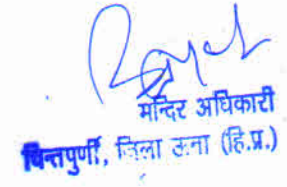 मन्दिर अधिकारी
चिन्तपुर्णी, जिला ऊना (हि.प्र.)